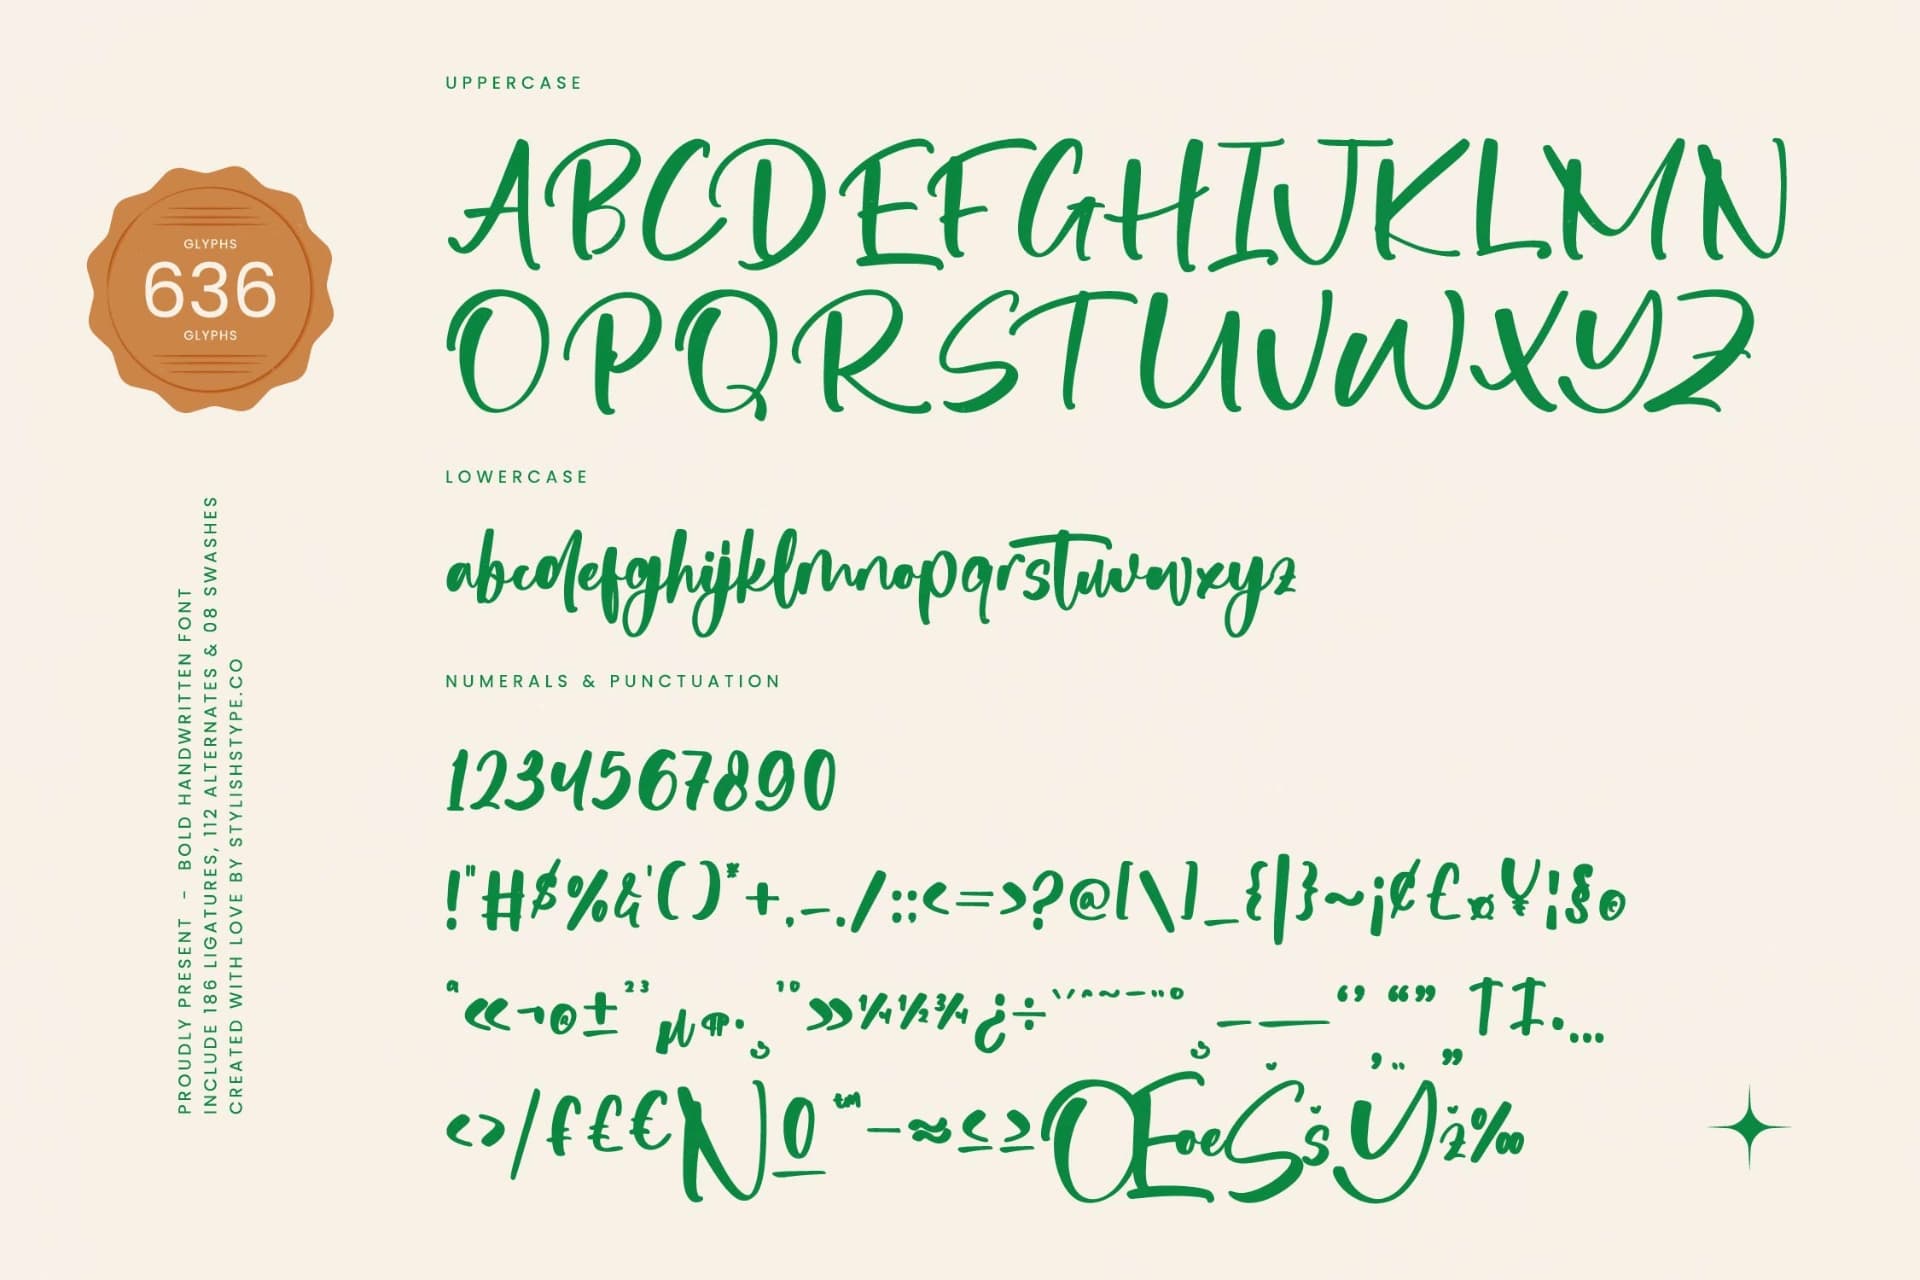 UPPERCASE
ABCDEFGHIJKLMN
OPQRSTUVWXYZ
GLYPHS
636
GLYPHS
LOWERCASE
abcdefghijklmnopqrstuvwxyz
NUMERALS & PUNCTUATION
1234567890
!"#$%&'()*+,-./:;<=>?@[\]_{|}~¡¢£¤¥¦§©
ª«¬®±²³µ¶·¸¹º»¼½¾¿÷
— ‘’ “” †‡•…
‹›⁄ƒ£€Nº™−≈≤≥ŒœŠšŸž‰
PROUDLY PRESENT - BOLD HANDWRITTEN FONT
INCLUDE 186 LIGATURES, 112 ALTERNATES & 08 SWASHES
CREATED WITH LOVE BY STYLISHSTYPE.CO